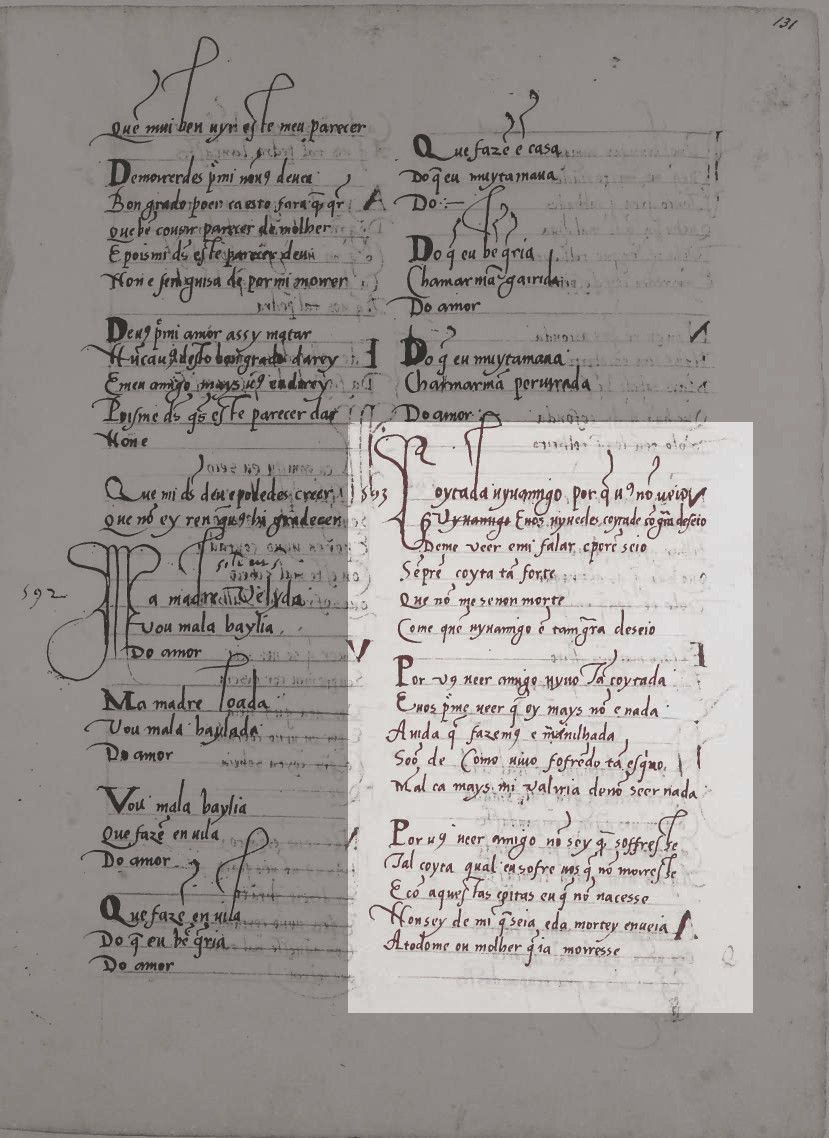 131
Quē mui ben uyn este meu parecer
Demorrerdes pͥmi nonꝯ deuea
Bon grado poen ca esto fara q̄ qr̄
que bē cousir parecer de molher
E pois mi ds̄ este parecer deu
Non e sen guisa de por mi morrer
Deuꝯ pͥmi amor assy matar
Nūca uꝯ desto bon grado darey
E meu amigo mays uꝯ en darey
Poisme ds̄ q̄s este parecer dar
Non e
Que mi ds̄ deu e podedes creer
que nō ey ren q̄ uꝯ hi gradecer
592
Ma madre velyda
Vou mala baylia
Do amor
Ma madre loada
Vou mala baylada
Do amor
Vou mala baylia
Que fazē en uila
Do amor
Que fazē en uila
Do q̄ eu bē q̄ria
Do amor
Que fazē ē casa
Do q̄ eu muytamaua
Do :—
Do q̄ eu bē q̄ria
Chamarmā garrida
Do amor
Do q̄ eu muytamaua
Chamarmā periurada
Do amor
593
Coytada uyuamigo por q̄ uꝯ nō ueio
E uos uyuedes coytade cō grā deseio
Deme ueer e mi falar e porē seio
Sēpre coyta tā forte
Que nō me senon morte
Come quē uyuamigo ē tam grā deseio
Por uꝯ ueer amigo uyuo Tā coytada
E uos pͥ me ueer q̄ oy mays nō e nada
A uida q̄ fazemꝯ e marauilhada
Soō de Como uiuo sofrēdo tā esq̄uo
Mal ca mays mi ualiria de nō seer nada
Por uꝯ ueer amigo nō sey q̄ soffresse
Tal coyta qual eu sofre uos q̄ nō morresse
E cō aquestas coitas eu q̄ nō nacesse
Non sey de mi q̄ seia e da mortey enueia
A todome ou molher q̄ ia morresse